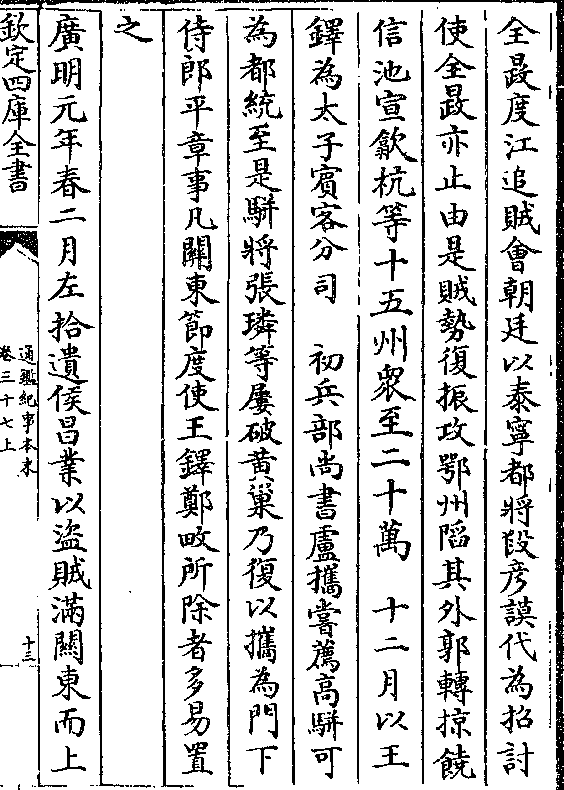 全晸度江追賊會朝廷以泰寧都將叚彦謨代為招討
使全晸亦止由是賊勢復振攻鄂州䧟其外郭轉掠饒
信池宣歙杭等十五州衆至二十萬 十二月以王
鐸為太子賓客分司 初兵部尚書盧攜嘗薦高駢可
為都統至是駢將張璘等屢破黄巢乃復以攜為門下
侍郎平章事凡關東節度使王鐸鄭畋所除者多易置
之
廣明元年春二月左拾遺侯昌業以盜賊滿關東而上
欽定四庫全書
通鑑紀事本末
卷三十七上
十三